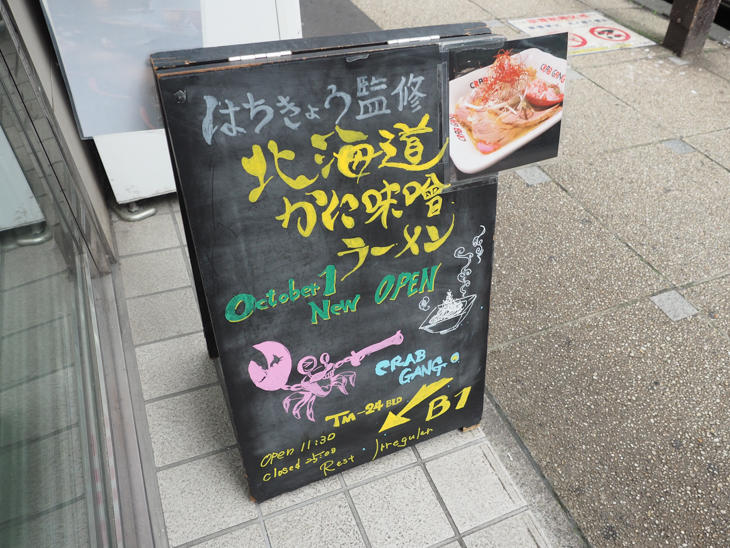 はちきょう監修
北海道
かに味噌
ラーメン
October 1
New OPEN
CRAB
GANG
TM-24 BLD
B1
OPEN 11:30
Rest. Irregular
CRAB GANG